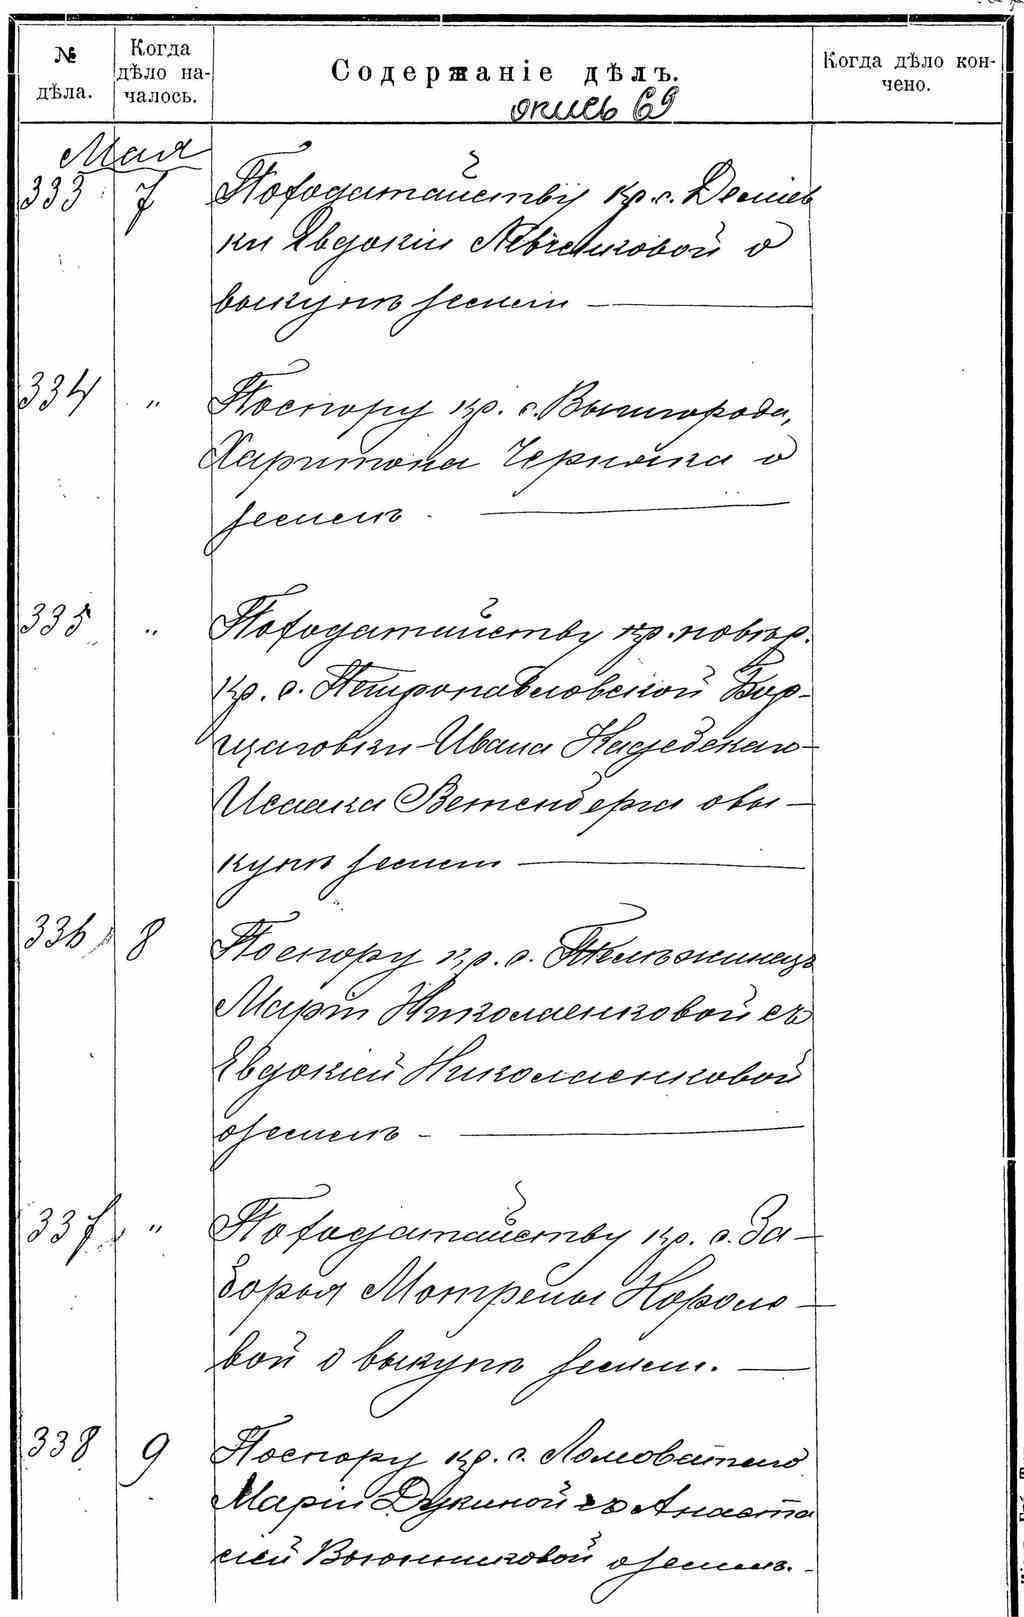 № дѣла.
Когда дѣло на-
чалось.
Содержаніе дѣлъ.
Когда дѣло кон-
чено.
опись 69
Мая
333 7 По ходатайству кр. с. Демиев
ки Евдокіи Левченковой о
выкупѣ земли
334 " По спору кр. с. Вышгорода,
Харитона Черняка о
землѣ.
335 " По ходатайству кр. повѣр.
кр. с. Петропавловской Бор-
щаговки Ивана
Исаака Ветенберга о вы-
купѣ земли
336 8 По спору кр. с.
Маріи Николаенковой съ
Евдокіей Николаенковой
о землѣ
337 " По ходатайству кр. с. За-
борья Мотрены
вой о выкупѣ земли.
338 9 По спору кр. с.
Маріи съ Анаста
сіей о землѣ.